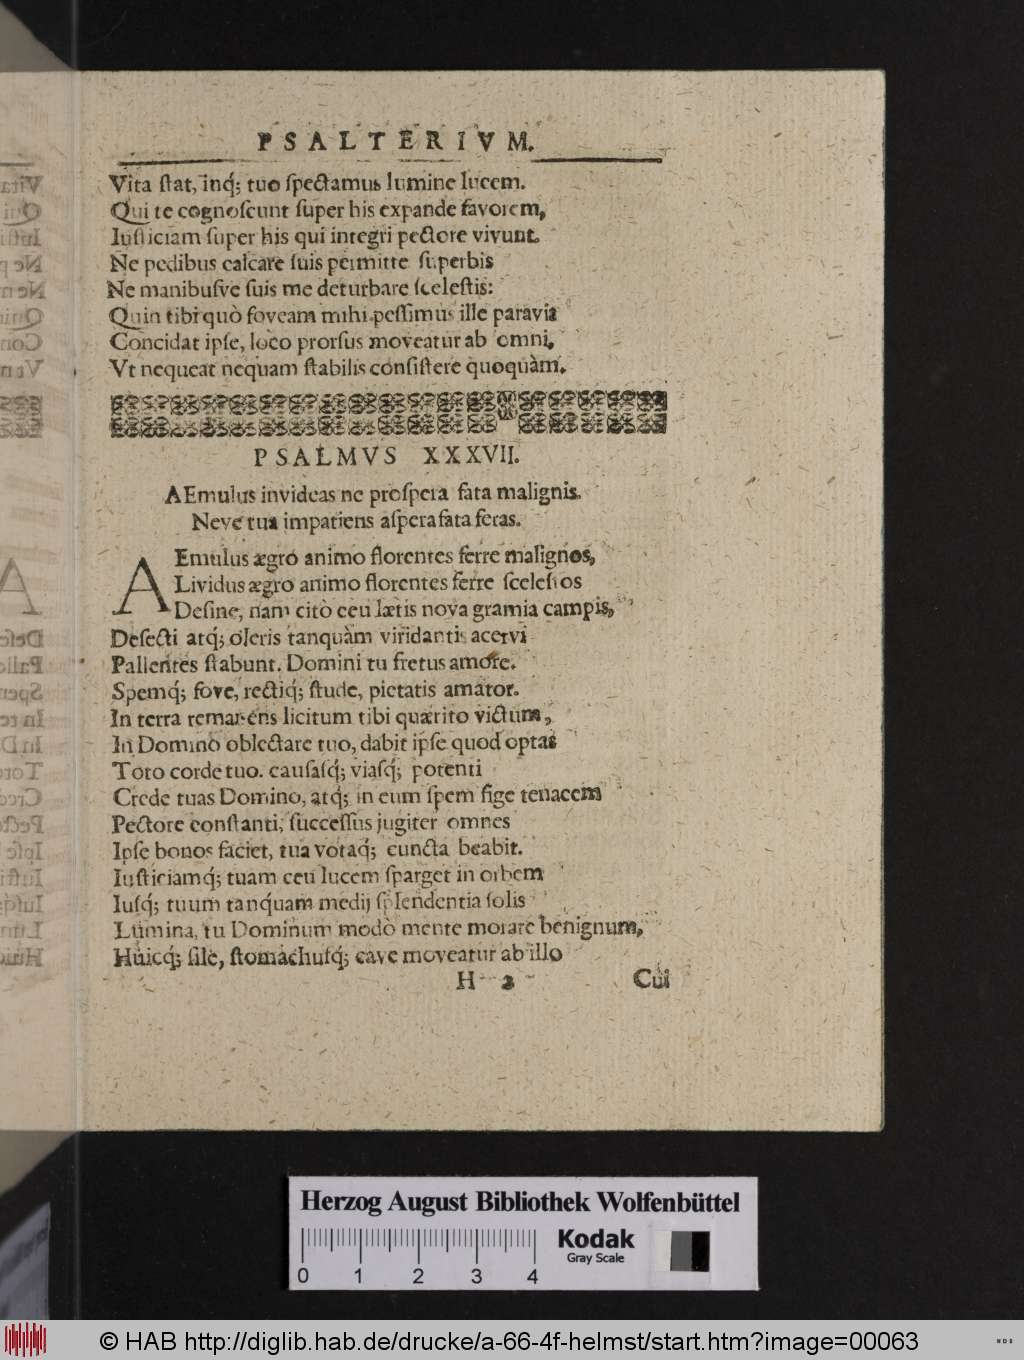 PSALTERIVM.
Vita ſtat, inq́; tuo ſpectamus lumine lucem.
Qui te cognoſcunt ſuper his expande favorem,
Iuſticiam ſuper his qui integri pectore vivunt.
Ne pedibus calcare ſuis permitte ſuperbis
Ne manibuſve ſuis me deturbare ſceleſtis:
Quin tibi quò foveam mihi peſſimus ille paravit
Concidat ipſe, loco prorſus moveatur ab omni,
Vt nequeat nequam ſtabilis conſiſtere quoquàm.
PSALMVS XXXVII.
AEmulus invideas ne proſpera fata malignis.
Neve tua impatiens aſpera fata feras.
AEmulus ægro animo florentes ferre malignos,
Lividus ægro animo florentes ferre ſceleſtos
Deſine, nam citò ceu lætis nova gramia campis,
Defecti atq́; oleris tanquàm viridantis acervi
Pallentes ſtabunt. Domini tu fretus amore.
Spemq́; fove, rectiq́; ſtude, pietatis amator.
In terra remanens licitum tibi quærito victum,
In Domino oblectare tuo, dabit ipſe quod optas
Toto corde tuo. cauſaſq́; viaſq́; potenti
Crede tuas Domino, atq́; in eum ſpem fige tenacem
Pectore conſtanti, ſucceſſus jugiter omnes
Ipſe bonos faciet, tua votaq́; cuncta beabit.
Iuſticiamq́; tuam ceu lucem ſparget in orbem
Iuſq́; tuum tanquam medij ſplendentia ſolis
Lumina, tu Dominum modò mente morare benignum,
Huicq́; ſile, ſtomachuſq́; cave moveatur ab illo
H 2 Cui
Herzog August Bibliothek Wolfenbüttel
Kodak
Gray Scale
0 1 2 3 4
© HAB http://diglib.hab.de/drucke/a-66-4f-helmst/start.htm?image=00063